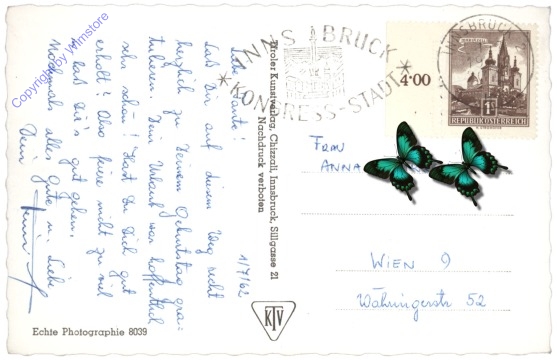 Copyright by Ansichtskartenversand
INNSBRUCK
KONGRESS-STADT
4·00
1S
REPUBLIK ÖSTERREICH
1/7/62
Liebe Tante!
Laß Dir auf diesem Weg recht
herzlich zu Deinem Geburtstag gra-
tulieren. Dein Urlaub war hoffentlich
sehr schön! Hast Du Dich gut
erholt? Also friere nicht zu viel
u. laß Dir's gut gehen.
Nochmals alles Gute in Liebe
Dein
Tiroler Kunstverlag, Chizzali, Innsbruck, Sillgasse 21
Nachdruck verboten
Echte Photographie 8039
KTV
FRAU
ANNA
WIEN 9
Währingerstr 52